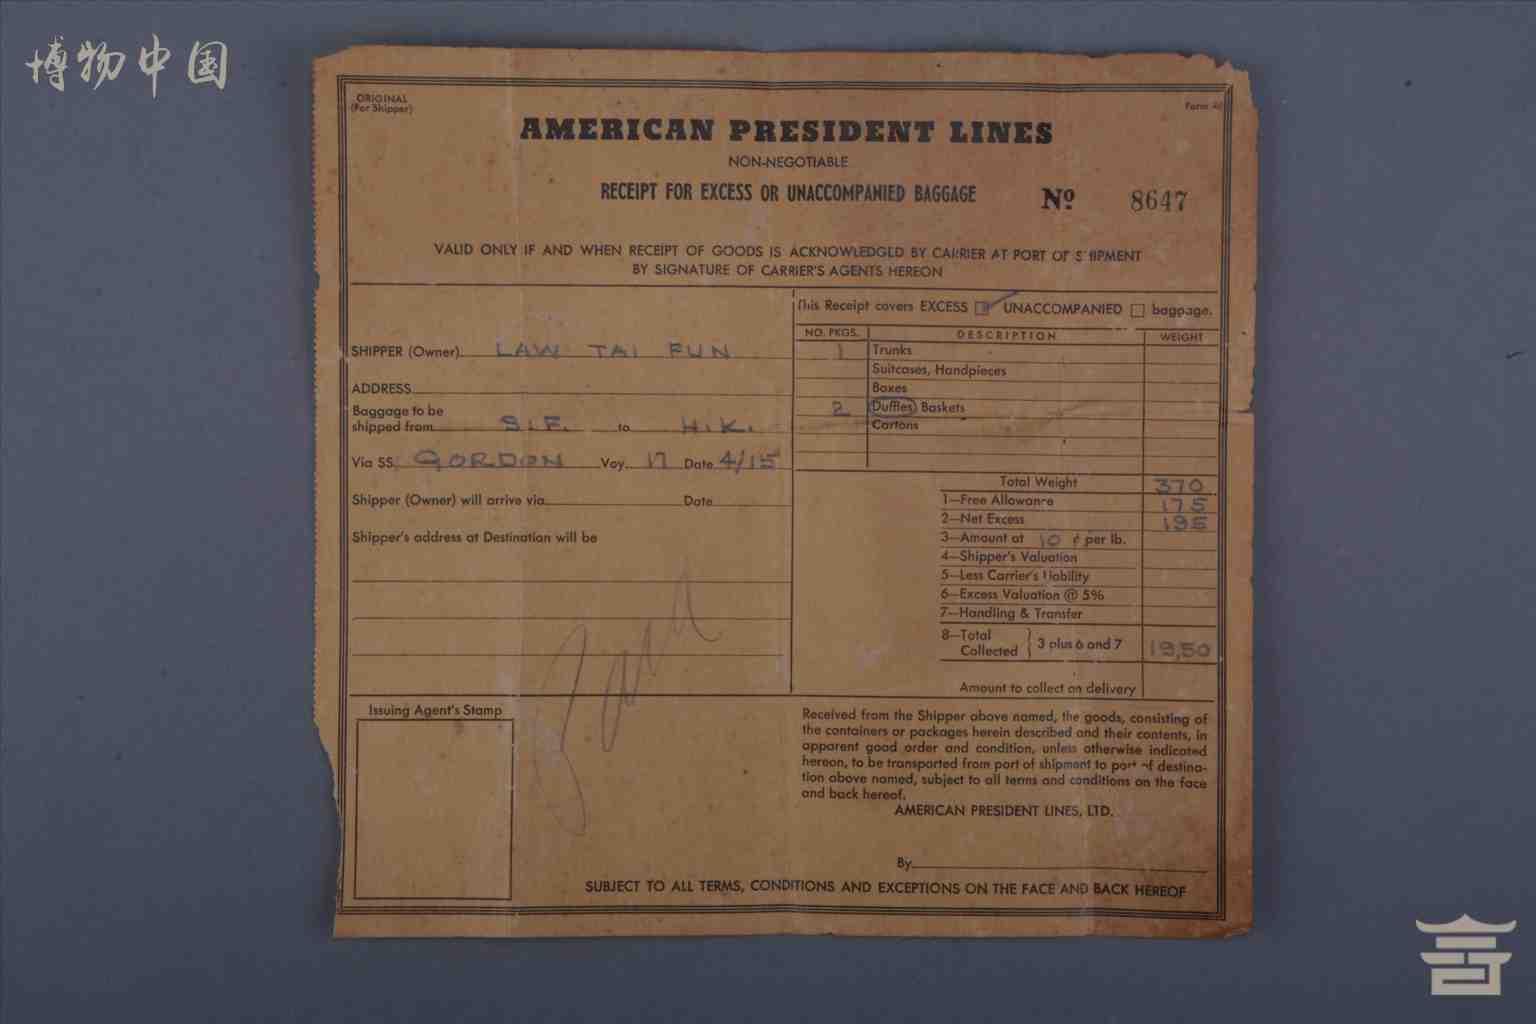 博物中国
ORIGINAL
(For Shipper)
Form 40
AMERICAN PRESIDENT LINES
NON-NEGOTIABLE
RECEIPT FOR EXCESS OR UNACCOMPANIED BAGGAGE
Nº 8647
VALID ONLY IF AND WHEN RECEIPT OF GOODS IS ACKNOWLEDGED BY CARRIER AT PORT OF SHIPMENT
BY SIGNATURE OF CARRIER'S AGENTS HEREON
This Receipt covers EXCESS UNACCOMPANIED baggage.
SHIPPER (Owner) LAW TAI FUN
ADDRESS
Baggage to be
shipped from S.F. to H.K.
Via SS GORDON Voy. 17 Date 4/15
Shipper (Owner) will arrive via Date
Shipper's address at Destination will be
NO. PKGS. DESCRIPTION WEIGHT
1 Trunks
Suitcases, Handpieces
Boxes
2 Duffles Baskets
Cartons
Total Weight 370
1—Free Allowance 175
2—Net Excess 195
3—Amount at 10 ¢ per lb.
4—Shipper's Valuation
5—Less Carrier's Liability
6—Excess Valuation @ 5%
7—Handling & Transfer
8—Total
Collected } 3 plus 6 and 7 19,50
Amount to collect on delivery
Issuing Agent's Stamp
Received from the Shipper above named, the goods, consisting of
the containers or packages herein described and their contents, in
apparent good order and condition, unless otherwise indicated
hereon, to be transported from port of shipment to port of destina-
tion above named, subject to all terms and conditions on the face
and back hereof.
AMERICAN PRESIDENT LINES, LTD.
By
SUBJECT TO ALL TERMS, CONDITIONS AND EXCEPTIONS ON THE FACE AND BACK HEREOF